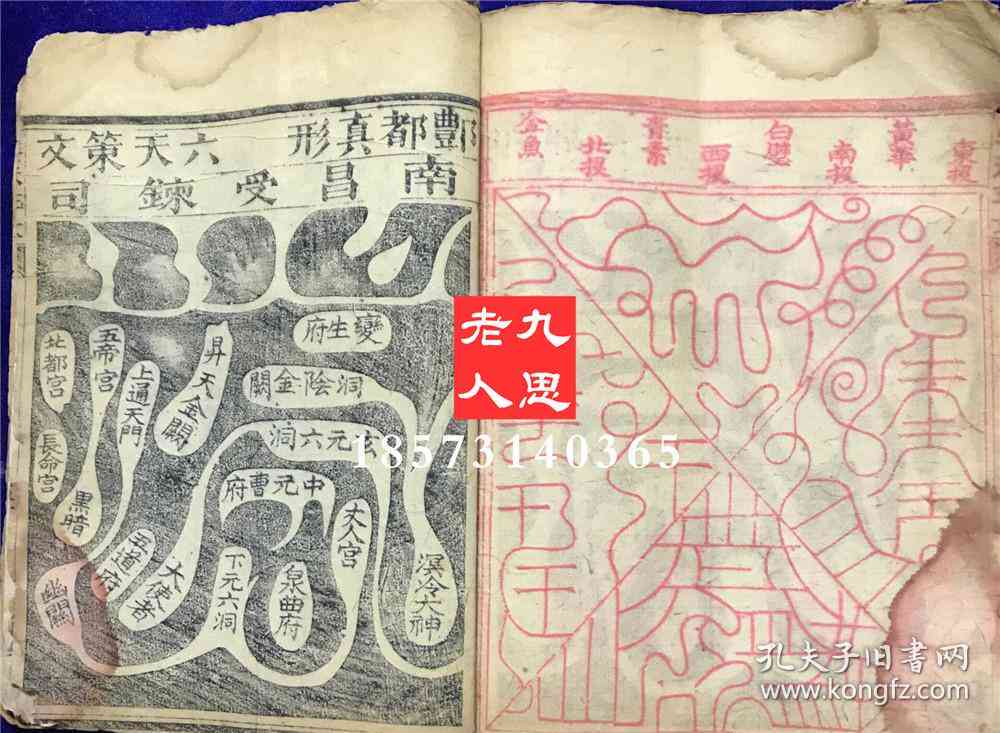 酆都真形
六天策文
南昌受鍊司
變生府
洞陰金闕
玄元六洞
中元曹府
昇天金闕
五帝宮
北都宮
上通天門
長命宮
黑暗
五道府
大使者
幽關
下元六洞
泉曲府
大人宮
溟泠大神
東授
黃華
南授
西授
北授
金魚
九思
老人
18573140365
孔夫子旧书网
www.kongfz.com